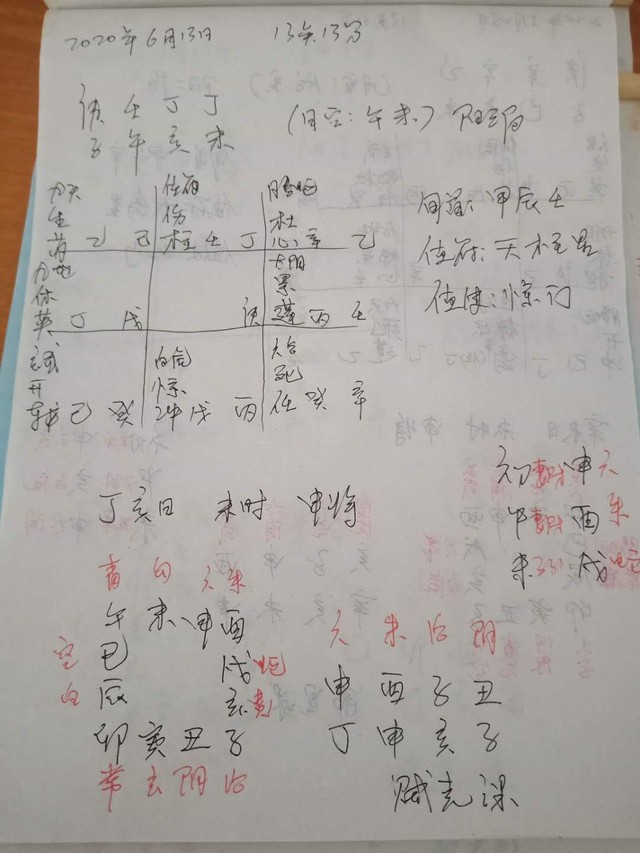 2020年6月13日 13点13分
庚 壬 丁 丁
子 午 亥 未
(日空:午未) 阳三局
九天 值符 螣蛇
生 伤 杜
芮 乙 己 柱 壬 丁 心 辛 乙
九地 太阴
休 景
英 丁 戊 庚 蓬 丙 壬
玄武 白虎 六合
开 惊 死
辅 己 癸 冲 戊 丙 任 癸 辛
旬首:甲辰壬
值符:天柱星
值使:惊门
丁亥日 未时 申将
初 申 元
中 酉 朱
末 戌 蛇
青 勾 六 朱
午 未 申 酉
空 巳 戌 蛇
白 辰 亥 贵
卯 寅 丑 子
常 玄 阴 后
六 朱 后 阴
申 酉 子 丑
丁 申 亥 子
贼克课